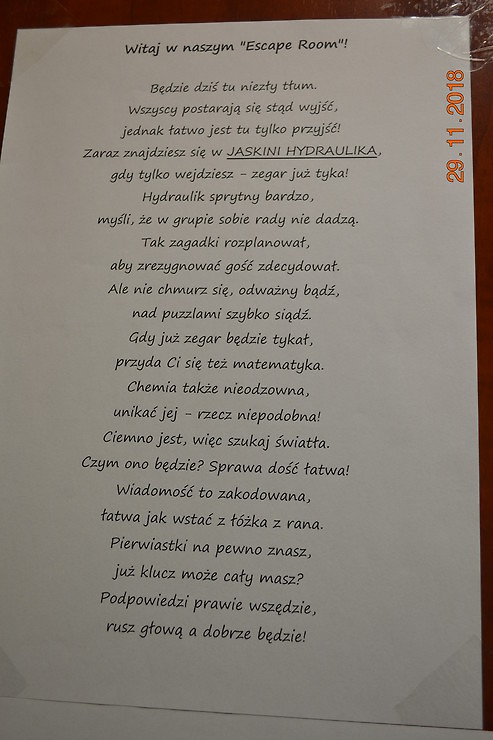 Witaj w naszym "Escape Room"!
Będzie dziś tu niezły tłum.
Wszyscy postarają się stąd wyjść,
jednak łatwo jest tu tylko przyjść!
Zaraz znajdziesz się w JASKINI HYDRAULIKA,
gdy tylko wejdziesz - zegar już tyka!
Hydraulik sprytny bardzo,
myśli, że w grupie sobie rady nie dadzą.
Tak zagadki rozplanował,
aby zrezygnować gość zdecydował.
Ale nie chmurz się, odważny bądź,
nad puzzlami szybko siądź.
Gdy już zegar będzie tykał,
przyda Ci się też matematyka.
Chemia także nieodzowna,
unikać jej - rzecz niepodobna!
Ciemno jest, więc szukaj światła.
Czym ono będzie? Sprawa dość łatwa!
Wiadomość to zakodowana,
łatwa jak wstać z łóżka z rana.
Pierwiastki na pewno znasz,
już klucz może cały masz?
Podpowiedzi prawie wszędzie,
rusz głową a dobrze będzie!
29.11.2018